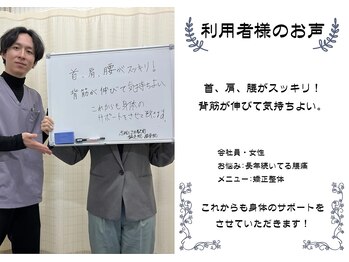 首、肩、腰がスッキリ！
背筋が伸びて気持ちよい。
これからも身体の
サポートさせて頂きます。
利用者様のお声
首、肩、腰がスッキリ！
背筋が伸びて気持ちよい。
会社員・女性
お悩み：長年続いてる腰痛
メニュー：矯正整体
これからも身体のサポートを
させていただきます！